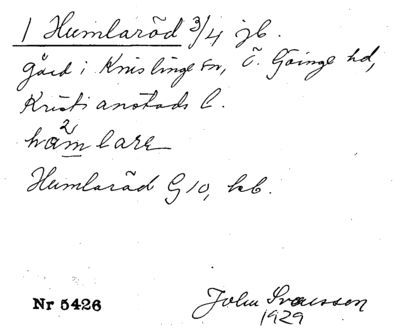 1 Humlaröd 3/4 jb.
gård i Knislinge sn, Ö. Göinge hd,
Kristianstads l.
ham²lare
Humlaröd G10, kb.
Nr 5426 John Svensson
1929